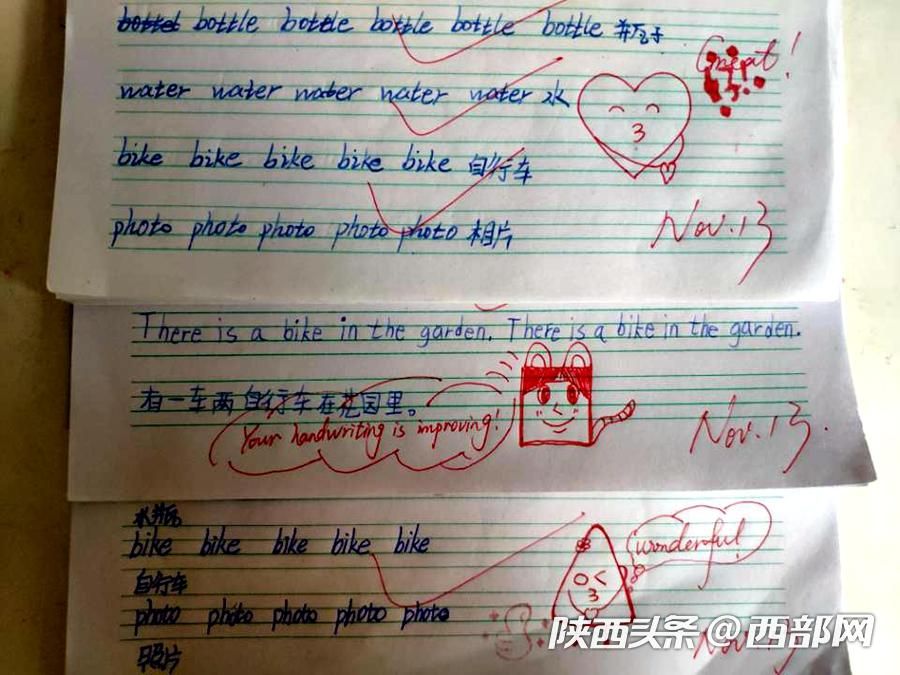 bottle bottle bottle bottle bottle 瓶子
Great!
water water water water water 水
bike bike bike bike bike 自行车
photo photo photo photo photo 相片
Nov. 13
There is a bike in the garden. There is a bike in the garden.
有一车两自行车在花园里。
Your handwriting is improving!
Nov. 13.
水瓶
bike bike bike bike bike
wonderful
自行车
photo photo photo photo photo
照片
Nov. 13
陕西头条 @西部网